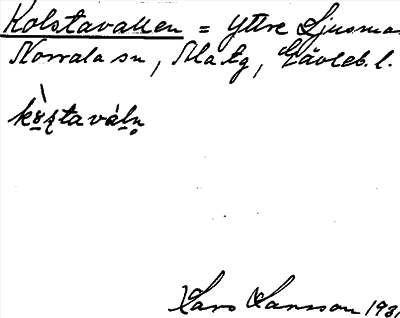 Kolstavallen = Yttre Ljusma
Norrala sn, Ala tg, Gävleb. l.
kòstaváln
Lars Larsson 193